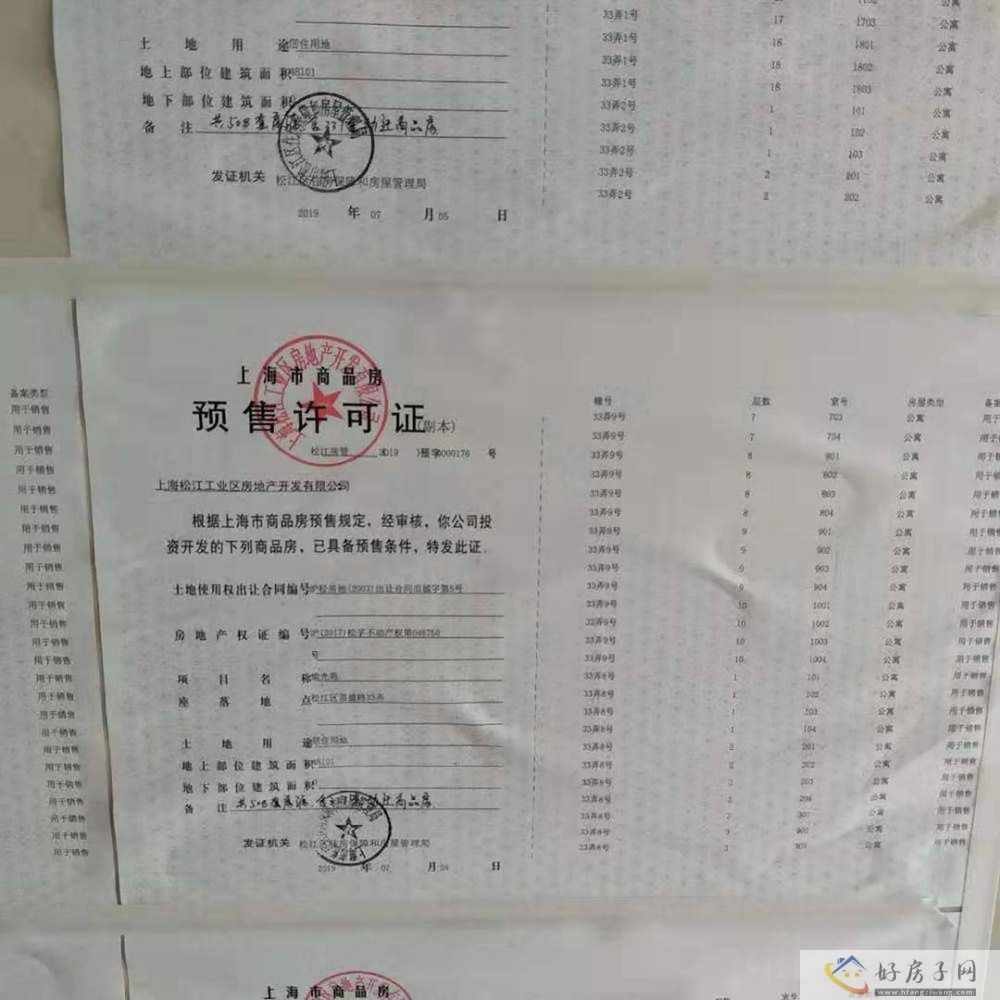 33弄1号 17 1703 公寓
土地用途 居住用地 33弄1号 18 1801 公寓
地上部位建筑面积 48101 33弄1号 18 1802 公寓
地下部位建筑面积 0 33弄1号 18 1803 公寓
备注 共508套房源 33弄2号 1 101 公寓
动迁商品房
33弄2号 1 102 公寓
33弄2号 1 103 公寓
发证机关 松江区住房保障和房屋管理局 33弄2号 2 201 公寓
33弄2号 2 202 公寓
2019 年 07 月 05 日
上海市商品房
预售许可证(副本)
松江房管 2019 预字000176 号
上海松江工业区房地产开发有限公司
根据上海市商品房预售规定，经审核，你公司投
资开发的下列商品房，已具备预售条件，特发此证．
土地使用权出让合同编号 沪松房地(2003)出让合同
房地产权证编号 沪(2017)松字不动产权第048750
号
项目名称
座落地点 松江区茸盛路33弄
土地用途 居住用地
地上部位建筑面积 48101
地下部位建筑面积 0
备注 共508套房源 动迁商品房
发证机关 松江区住房保障和房屋管理局
2019 年 07 月 日
备案类型
用于销售
用于销售
用于销售
用于销售
用于销售
用于销售
用于销售
用于销售
用于销售
用于销售
用于销售
用于销售
用于销售
用于销售
用于销售
用于销售
用于销售
用于销售
用于销售
用于销售
用于销售
用于销售
用于销售
用于销售
幢号 层数 室号 房屋类型 备案
33弄9号 7 703 公寓 用于
33弄9号 7 704 公寓 用于销
33弄9号 8 801 公寓 用于销
33弄9号 8 802 公寓 用于销
33弄9号 8 803 公寓 用于销
33弄9号 8 804 公寓 用于销
33弄9号 9 901 公寓 用于销
33弄9号 9 902 公寓 用于销
33弄9号 9 903 公寓 用于销
33弄9号 9 904 公寓 用于销
33弄9号 10 1001 公寓 用于销
33弄9号 10 1002 公寓 用于销
33弄9号 10 1003 公寓 用于销售
33弄9号 10 1004 公寓 用于销售
33弄8号 1 101 公寓 用于销售
33弄8号 1 102 公寓 用于销售
33弄8号 1 103 公寓 用于销售
33弄8号 1 104 公寓 用于销售
33弄8号 2 201 公寓 用于销售
33弄8号 2 202 公寓 用于销售
33弄8号 2 203 公寓 用于销售
33弄8号 2 204 公寓 用于销售
33弄8号 3 公寓 用于销售
33弄8号 3 公寓 用于销售
上海市商品房
好房子网
www.hfangziwang.com